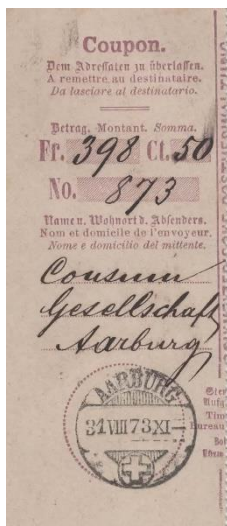 Coupon.
Dem Adressaten zu überlassen.
A remettre au destinataire.
Da lasciare al destinatario.
Betrag. Montant. Somma.
Fr. 398 Ct. 50
No. 873
Name u. Wohnort d. Absenders.
Nom et domicile de l'envoyeur.
Nome e domicilio del mittente.
Consum
Gesellschaft
Aarburg
AARBURG
31 VIII 73 XI–